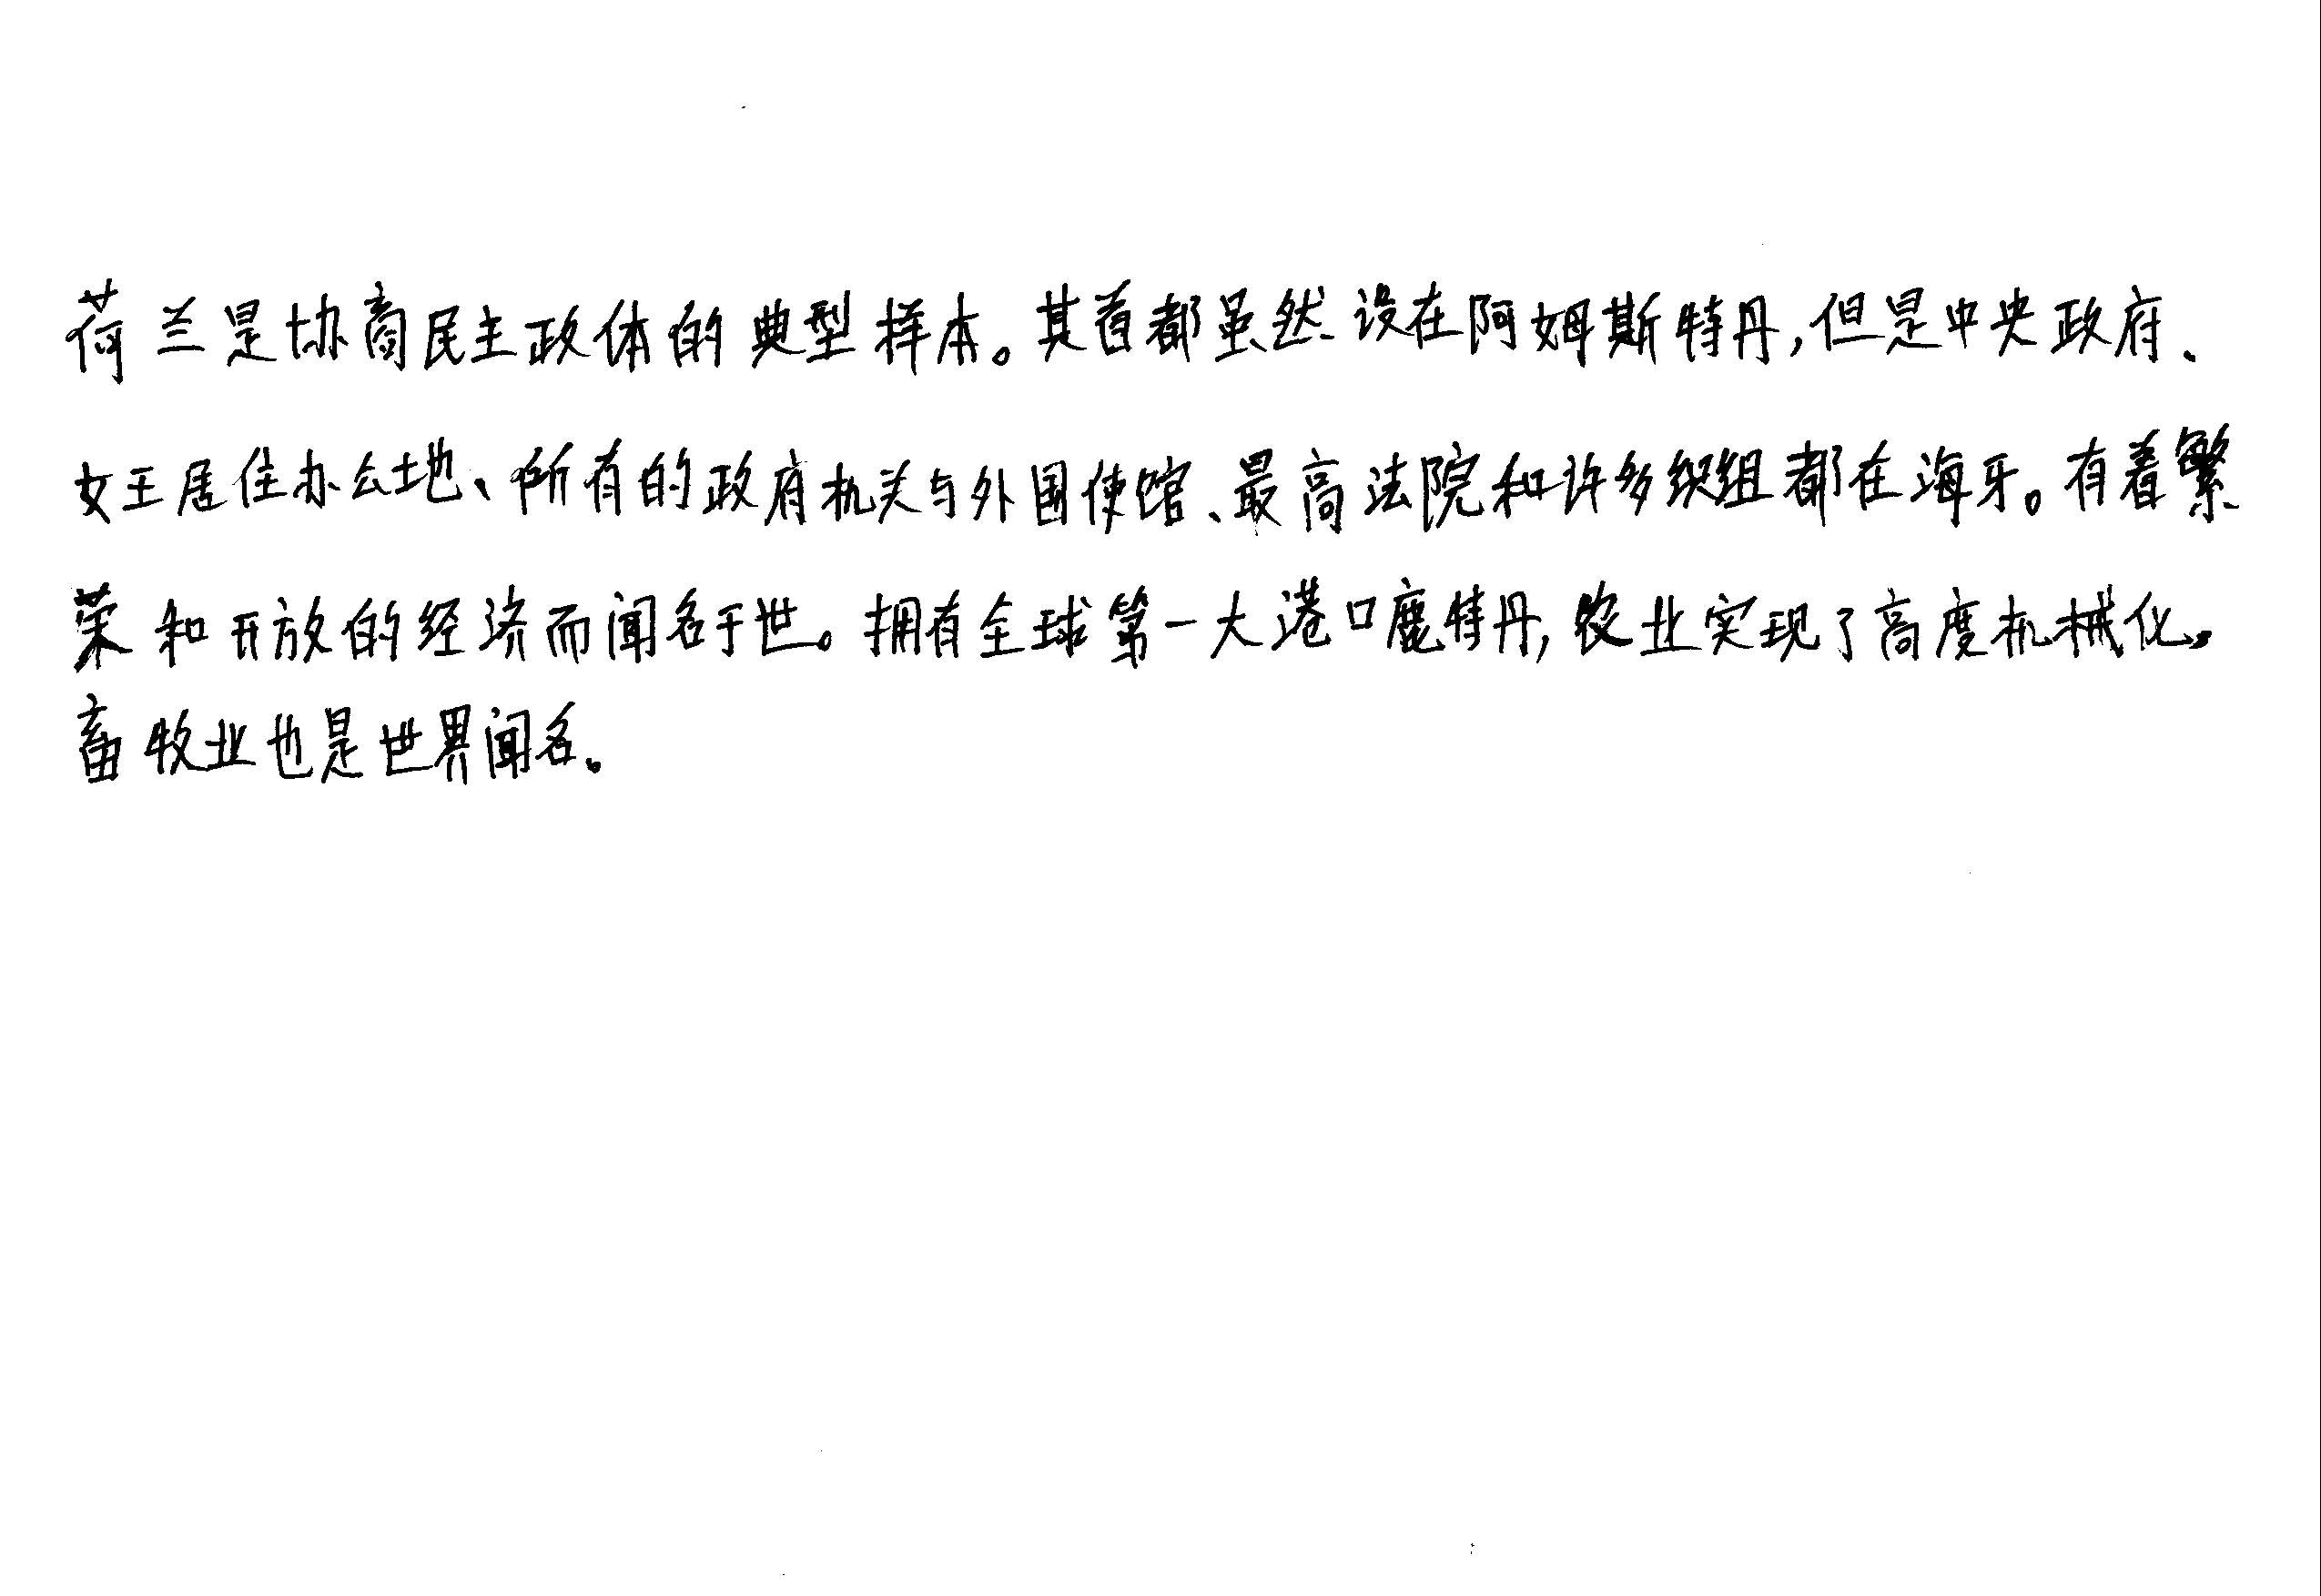 荷兰是协商民主政体的典型样本。其首都虽然设在阿姆斯特丹,但是中央政府、
女王居住办公地、所有的政府机关与外国使馆、最高法院和许多织组都在海牙。有着繁
荣和开放的经济而闻名于世。拥有全球第一大港口鹿特丹,农业实现了高度机械化。
畜牧业也是世界闻名。